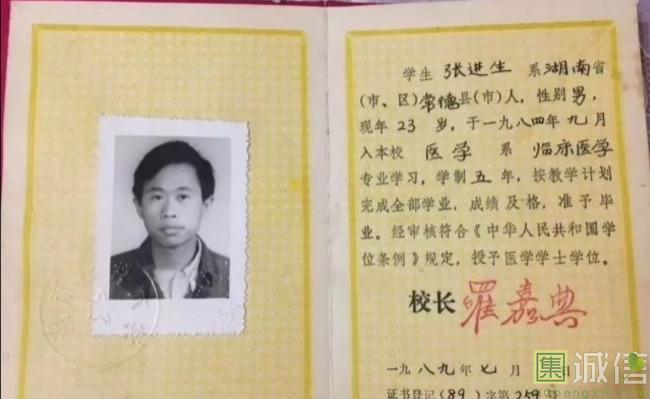 学生 张进生 系湖南省
(市、区)常德县(市)人，性别男，
现年 23 岁，于一九八四年九月
入本校 医学 系 临床医学
专业学习，学制五年，按教学计划
完成全部学业，成绩及格，准予毕
业。经审核符合《中华人民共和国学
位条例》规定，授予医学学士学位。
校长 罗嘉典
一九八九年七月 日
证书登记(89)字第259
集诚信